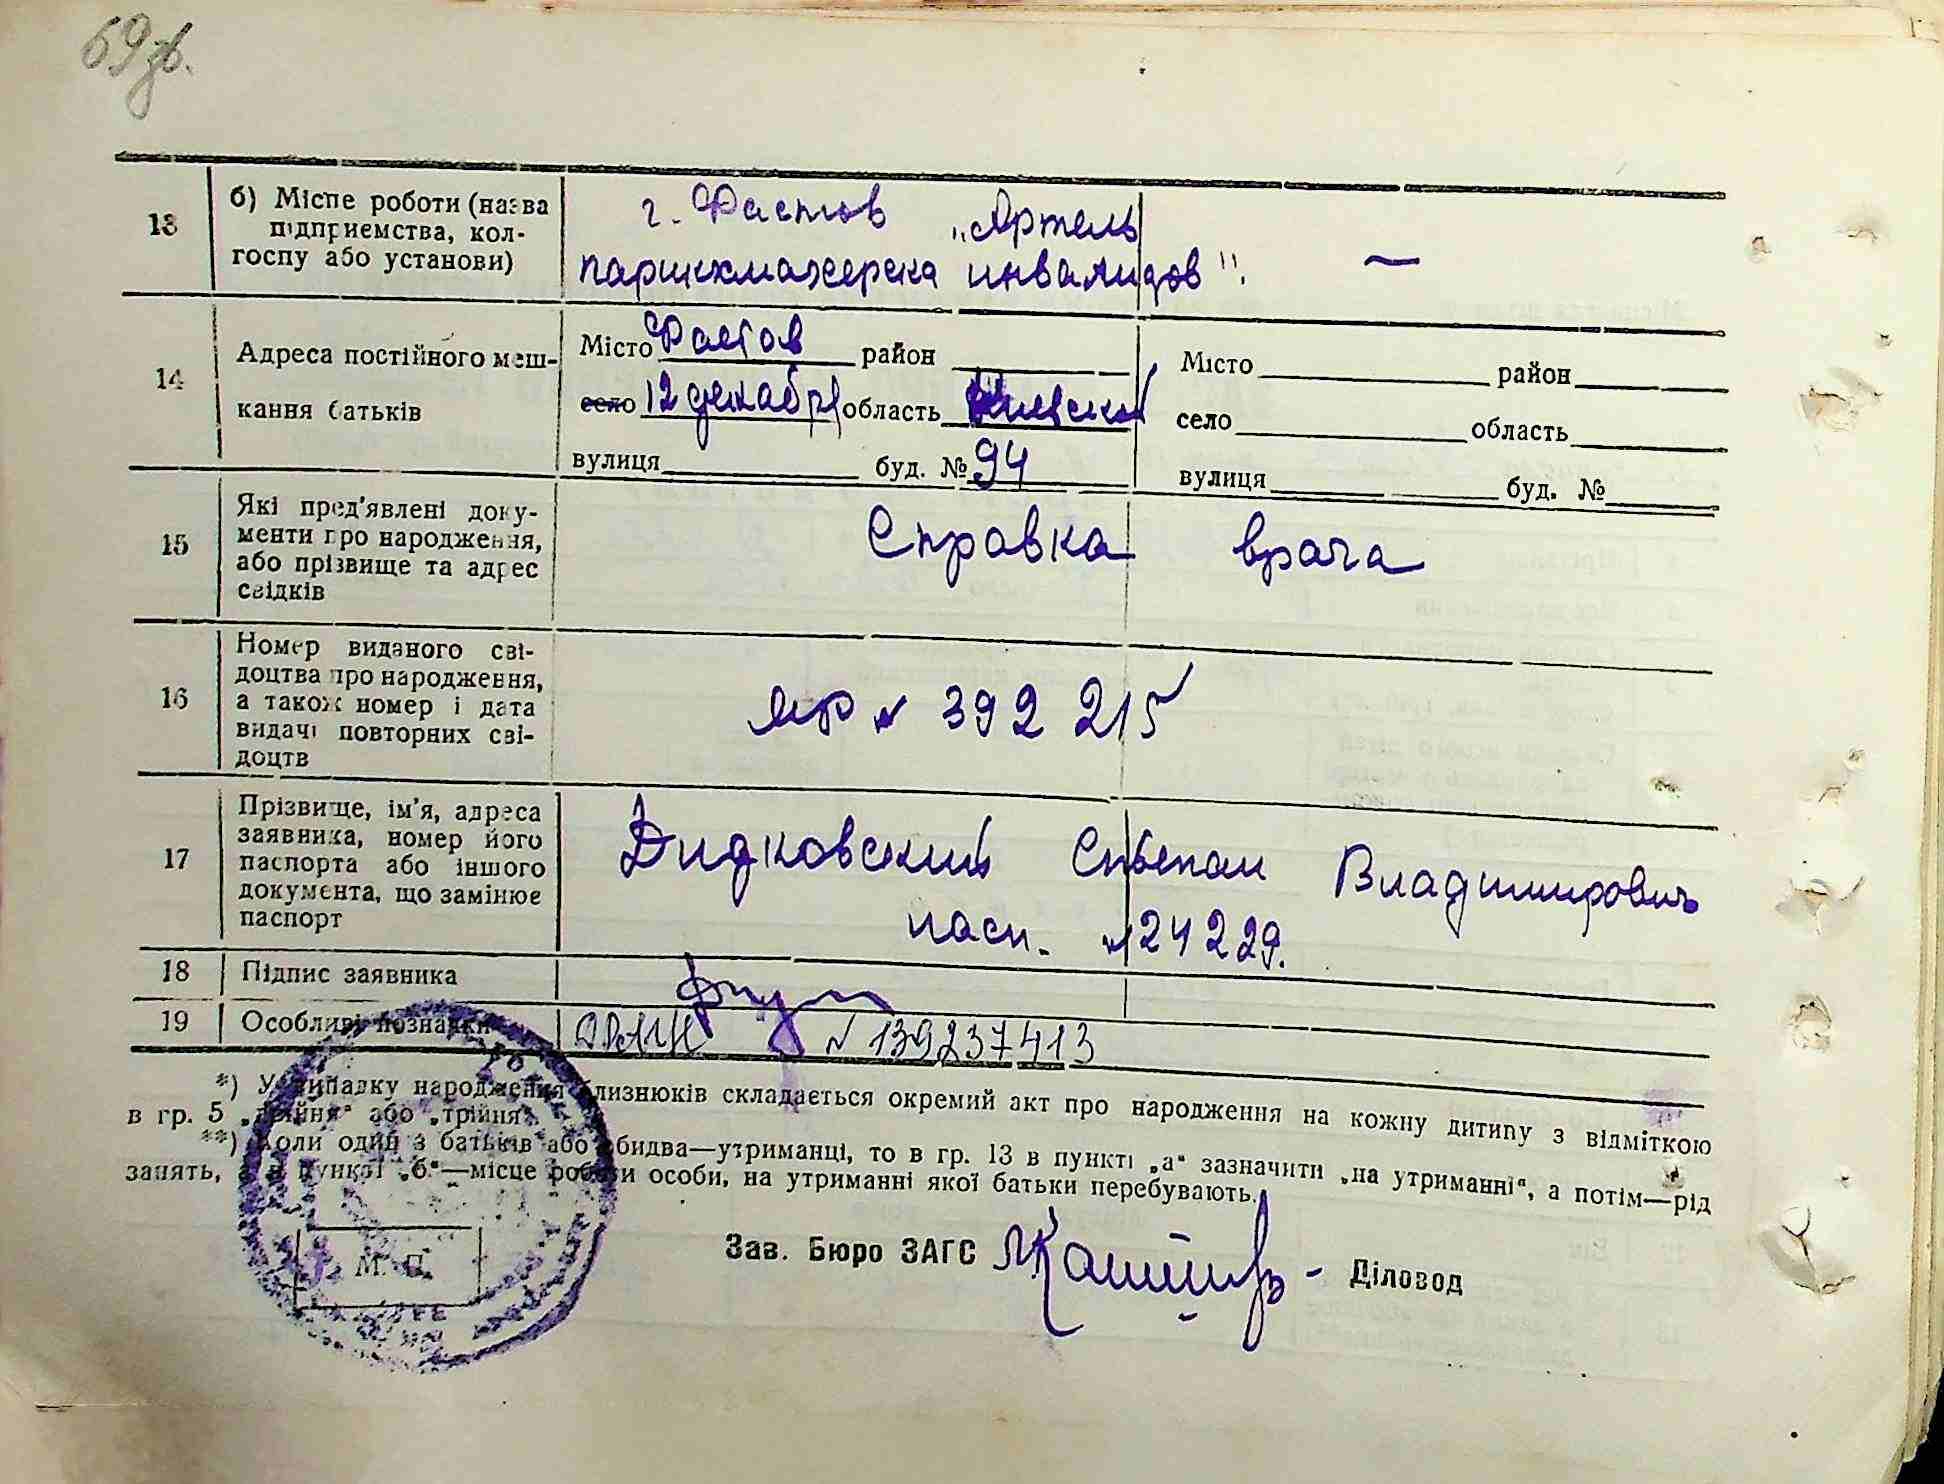 69 зв.
13
б) Місце роботи (назва
підприємства, кол-
госпу або установи)
г. Фастов „Артель
парикмахерска инвалидов".
—
14
Адреса постійного меш-
кання батьків
Місто Фастов район
село 12 декабря область Киевской
вулиця буд. № 94
Місто район
село область
вулиця буд. №
15
Які пред'явлені доку-
менти про народження,
або прізвище та адрес
свідків
Справка врача
16
Номер виданого сві-
доцтва про народження,
а також номер і дата
видачі повторних сві-
доцтв
№ 392 215
17
Прізвище, ім'я, адреса
заявника, номер його
паспорта або іншого
документа, що замінює
паспорт
Дидковский Степан Владимирович
пасп. №24229.
18
Підпис заявника
19
Особливі познаки
ДРАЦС №139237413
*) У випадку народження близнюків складається окремий акт про народження на кожну дитину з відміткою
в гр. 5 „двійня" або „трійня"
**) Коли один з батьків або обидва—утриманці, то в гр. 13 в пункті „а" зазначити „на утриманні", а потім—рід
занять, а в пункті „б"—місце роботи особи, на утриманні якої батьки перебувають.
М. П.
Зав. Бюро ЗАГС
Діловод